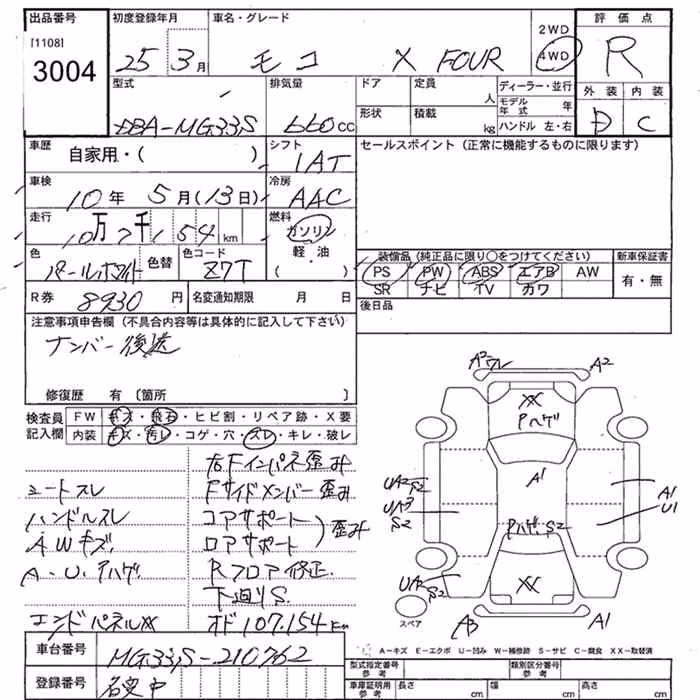 出品番号 初度登録年月 車名・グレード 評価点
[1108]
3004
25年3月 モコ X FOUR 2WD 4WD R
型式 排気量 ドア 定員 人 ディーラー・並行 外装 内装
DBA-MG33S 660cc 形状 積載 kg モデル年式 年 D C
ハンドル 左・右
車歴 シフト セールスポイント(正常に機能するものに限ります)
自家用・( ) IAT
車検 冷房
10年5月(13日) AAC
走行 燃料
10万7千154km ガソリン 軽・油 ( )
色 色替 色コード 装備品(純正品に限り○をつけてください) 新車保証書
パールホワイト Z7T PS PW ABS エアB AW 有・無
SR ナビ TV カワ
R券 8930円 名変通知期限 月 日 後日品
注意事項申告欄(不具合内容等は具体的に記入して下さい)
ナンバー後送
修復歴 有 〔箇所 〕
検査員 FW キズ・飛石・ヒビ割・リペア跡・X要
記入欄 内装 キズ・汚レ・コゲ・穴・スレ・キレ・破レ
右Fインパネ歪み
シートスレ Fサイドメンバー歪み
ハンドルスレ コアサポート
AWキズ ロアサポート )歪み
A・U・Pハゲ Rフロア修正
下廻りS
エンドパネルXX オド107,154km
A2 ワレ A2
XX
Pハゲ
A1
UA2 S2 A1 U1
UA3 S2 Pハゲ、S2
UA2 S2 XX
スペア A3 A1
A-キズ E-エクボ U-凹み W-補修跡 S-サビ C-腐食 XX-取替済
車台番号 MG33S-210762
登録番号 名変中
型式指定番号 参考 類別区分番号 参考
車庫証明用 参考 長さ cm 幅 cm 高さ cm